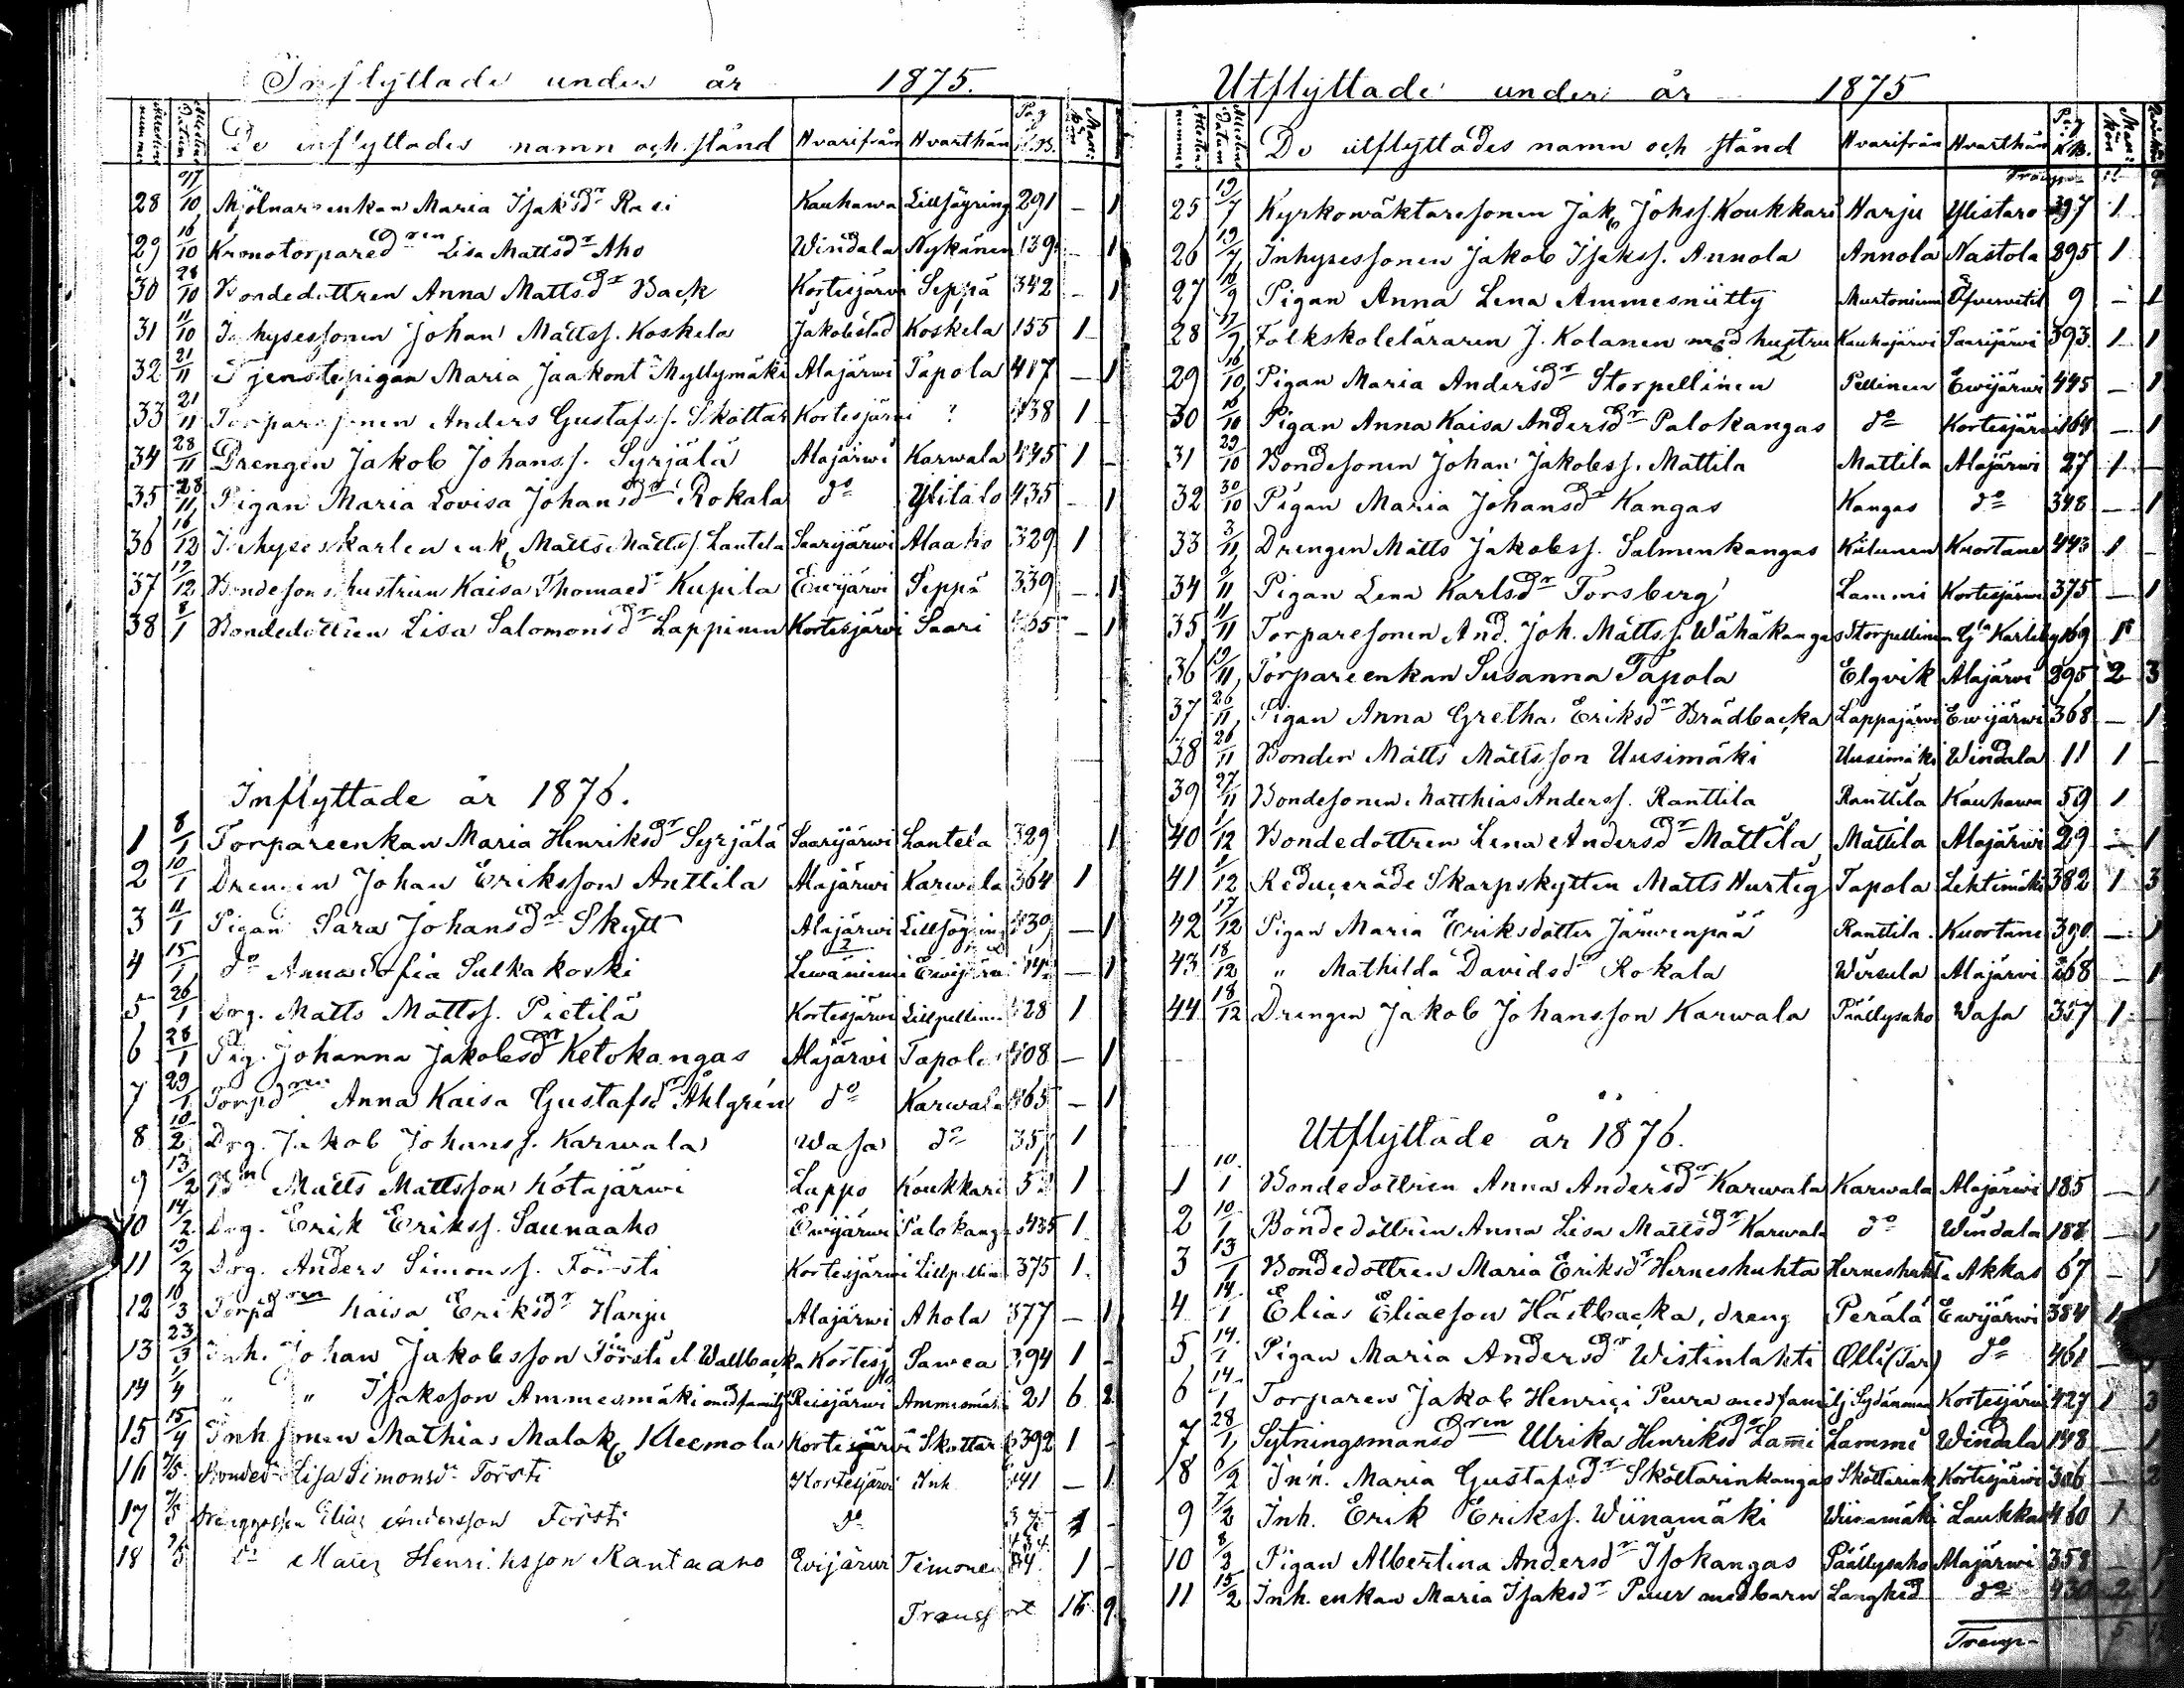 Inflyttade under år 1875.
De inflyttades namn och stånd Hvarifrån Hvarthän Pag. K.B. Man-kön
28 27/10 Mjölnarenkan Maria Isaksdr Kauhawa Lillsöyring 291 — 1
29 16/10 Kronotorparedren Lisa Mattsdr Aho Windala Nykänen 139 — 1
30 28/10 Bondedottren Anna Mattsdr Back Kortesjärvi Seppä 342 — 1
31 11/10 Inhysessonen Johan Mattss. Koskela Jakobstad Koskela 155 1
32 21/11 Tjenstepigan Maria Jaakont Myllymäki Alajärwi Tapola 417 — 1
33 21/11 Torparesonen Anders Gustafss. Skottar Kortesjärvi ? 438 1
34 28/11 Drengen Jakob Johanss. Syrjälä Alajärwi Karwala 445 1 —
35 28/11 Pigan Maria Lovisa Johansdr Rokala do Ylitalo 435 — 1
36 16/12 Inhyseskarlen enk. Matts Mattss. Lantela Saarijärwi Alaaho 329 1
37 19/12 Bondesonshustrun Kaisa Thomaedr Kupila Ewijärwi Seppä 339 — 1
38 8/1 Bondedottren Lisa Salomonsdr Lappinen Kortesjärvi Saari — 1
Inflyttade år 1876.
1 8/1 Torpareenkan Maria Henriksdr Syrjälä Saarijärwi Lantela 329 1
2 10/1 Drengen Johan Eriksson Anttila Alajärwi Karwala 364 1
3 11/1 Pigan Sara Johansdr Skytt Alajärwi — 1
4 15/1 do Anna Sofia Sulkakoski Lewäniemi Ewijärvi — 1
5 26/1 Drg. Matts Mattss. Pietilä Kortesjärvi Lillpellinen 428 1
6 28/1 Pig. Johanna Jakobsdr Ketokangas Alajärvi Tapola 408 — 1
7 29/1 Torpdren Anna Kaisa Gustafsdr Åhlgrén do Karwala 465 — 1
8 10/2 Drg. Jakob Johanss. Karwala Wasa do 1
9 13/2 Matts Mattsson Kotajärwi Lappo Koukkari 1
10 14/2 Drg. Erik Erikss. Saunaaho Ewijärwi Palokang. 435 1
11 Drg. Anders Simonss. Försti Kortesjärwi Lillpellin. 375 1
12 10/3 Torpdren Kaisa Eriksdr Harju Alajärwi Ahola 377 — 1
13 23/3 Inh. Johan Jakobsson Försti el Wallbacka Kortesj. Sawea 394 1 —
14 1/4 " " Isaksson Ammesmäki med familj Reisjärwi Ammesmäki 21 6 2
15 15/4 Inh. sonen Mathias Malak. Kleemola Kortesjärvi Skottar 392 1 —
16 7/5 Bonded. Lisa Simonsdr Försti Kortesjärvi Inh — 1
17 7/5 Drenggossen Elias Andersson Försti do 1 —
18 do Henriksson Rantaaho Evijärvi Timonen 1 —
Transport 16 9
Utflyttade under år 1875
De utflyttades namn och stånd Hvarifrån Hvarthän Pag. K.B. Man-kön
Transp.
25 19/7 Kyrkowäktaresonen Jak. Johss. Koukkari Harju Ylistaro 397 1
26 19/7 Inhysessonen Jakob Isakss. Annola Annola Nastola 895 1
27 10/9 Pigan Anna Lena Ammesniitty Murtoniemi Öfvervetil 9 — 1
28 17/9 Folkskoleläraren J. Kolanen med hustru Kauhajärvi Saarijärvi 393 1 1
29 16/10 Pigan Maria Andersdr Storpellinen Pellinen Ewijärwi 445 — 1
30 16/10 Pigan Anna Kaisa Andersdr Palokangas do Kortesjärvi 164 — 1
31 29/10 Bondesonen Johan Jakobss. Mattila Mattila Alajärwi 27 1 —
32 30/10 Pigan Maria Johansdr Kangas Kangas do 348 — 1
33 3/11 Drengen Matts Jakobss. Salmenkangas Kuortane 443 1 —
34 Pigan Lena Karlsdr Forsberg Lammi Kortesjärvi 375 — 1
35 11/11 Torparesonen And. Joh. Mattss. Wähäkangas Storpellinen Gla Karleby 169 1
36 19/11 Torpareenkan Susanna Tapola Elgvik Alajärwi 295 2 3
37 26/11 Pigan Anna Gretha Eriksdr Brädbacka Lappajärvi Ewijärwi 368 — 1
38 26/11 Bonden Matts Mattsson Uusimäki Uusimäki Windala 11 1 —
39 27/11 Bondesonen Matthias Anderss. Ranttila Ranttila Kauhawa 59 1
40 1/12 Bondedottren Lena Andersdr Mattila Mattila Alajärwi 29 — 1
41 Reducerade Skarpskytten Matts Hurtig Tapola Lehtimäki 382 1 3
42 17/12 Pigan Maria Eriksdotter Järwenpää Ranttila Kuortane 390 — 1
43 18/12 " Mathilda Davidsdr Rokala Wirsula Alajärvi 268 — 1
44 18/12 Drengen Jakob Johansson Karwala Päällysaho Wasa 357 1 —
Utflyttade år 1876.
1 10/1 Bondedottren Anna Andersdr Karwala Karwala Alajärwi 185 — 1
2 10/1 Bondedottren Anna Lisa Mattsdr Karwala do Windala 188 — 1
3 13/1 Bondedottren Maria Eriksdr Herneshuhta Herneshuhta Akkas 67 — 1
4 14/1 Elias Eliasson Hästbacka, dreng Perälä Ewijärwi 384 1
5 14/1 Pigan Maria Andersdr Wistinlahti Olli (Tar) do 461 —
6 14/1 Torparen Jakob Henrici Peura med familj Sydänmaa Kortesjärvi 427 1 3
7 28/1 Sytningsmansdren Ulrika Henriksdr Lami Lammi Windala 148 — 1
8 6/2 Inh. Maria Gustafsdr Skottarinkangas Skottarink. Kortesjärvi 306 — 2
9 7/2 Inh. Erik Erikss. Wiinamäki Wiinamäki Laukkas 460 1
10 8/2 Pigan Albertina Andersdr Isokangas Päällysaho Alajärwi 358 — 1
11 15/2 Inh. enkan Maria Isaksdr Puur med barn Langhed do 430 2 1
Transp. 5